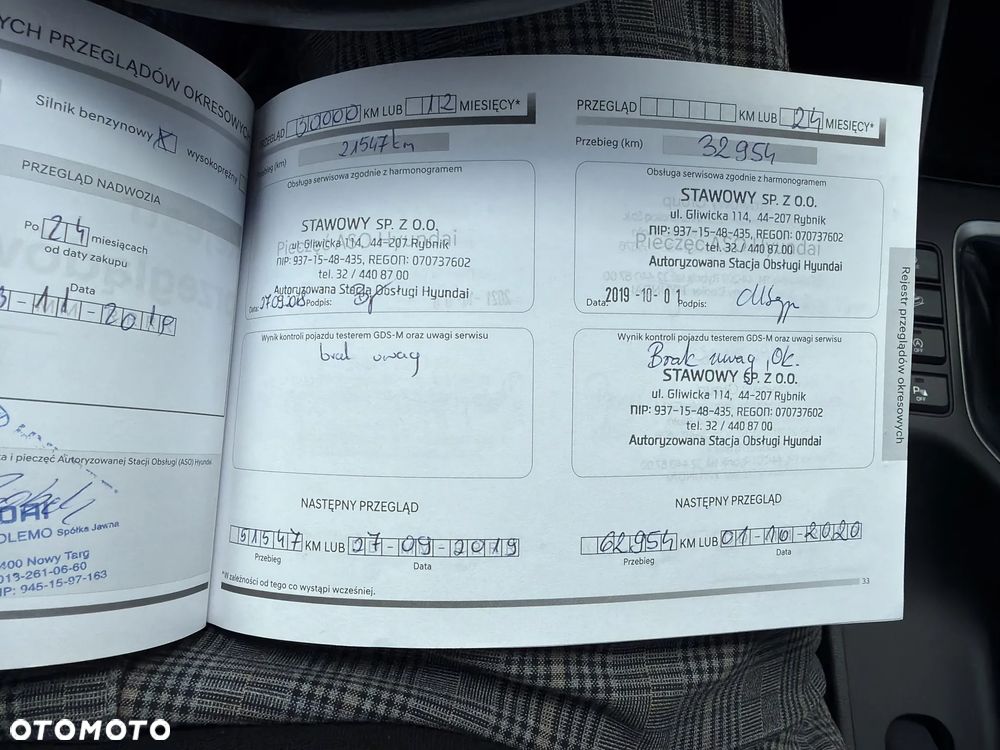 YCH PRZEGLĄDÓW OKRESOWYCH
Silnik benzynowy X wysokoprężny
PRZEGLĄD NADWOZIA
Po 24 miesiącach
od daty zakupu
Data
11-201
ta i pieczęć Autoryzowanej Stacji Obsługi (ASO) Hyundai
OLEMO Spółka Jawna
400 Nowy Targ
013-261-06-60
IP: 945-15-97-163
PRZEGLĄD 30000 KM LUB 12 MIESIĘCY*
Przebieg (km) 21547 km
Obsługa serwisowa zgodnie z harmonogramem
Pieczęć ASO Hyundai
STAWOWY SP. Z O.O.
ul. Gliwicka 114, 44-207 Rybnik
NIP: 937-15-48-435, REGON: 070737602
tel. 32 / 440 87 00
Autoryzowana Stacja Obsługi Hyundai
Data: 27.09.2018 Podpis:
Wynik kontroli pojazdu testerem GDS-M oraz uwagi serwisu
brak uwag
NASTĘPNY PRZEGLĄD
51547 KM LUB 27-09-2019
Przebieg Data
*W zależności od tego co wystąpi wcześniej.
PRZEGLĄD KM LUB 24 MIESIĘCY*
Przebieg (km) 32954
Obsługa serwisowa zgodnie z harmonogramem
Pieczęć ASO Hyundai
STAWOWY SP. Z O.O.
ul. Gliwicka 114, 44-207 Rybnik
NIP: 937-15-48-435, REGON: 070737602
tel. 32 / 440 87 00
Autoryzowana Stacja Obsługi Hyundai
Data: 2019-10-01 Podpis:
Wynik kontroli pojazdu testerem GDS-M oraz uwagi serwisu
Brak uwag, OK.
STAWOWY SP. Z O.O.
ul. Gliwicka 114, 44-207 Rybnik
NIP: 937-15-48-435, REGON: 070737602
tel. 32 / 440 87 00
Autoryzowana Stacja Obsługi Hyundai
NASTĘPNY PRZEGLĄD
62954 KM LUB 01-10-2020
Przebieg Data
33
Rejestr przeglądów okresowych
OFF
OTOMOTO